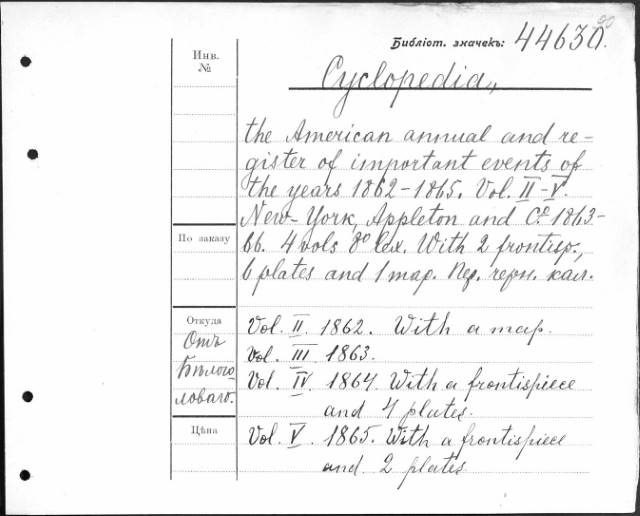 90
Библіот. значекъ: 44630.
Инв. №
Cyclopedia,,
the American annual and re-
gister of important events of
the years 1862-1865. Vol. II-V.
New-York, Appleton and Co 1863-
66. 4 vols 8o lex. With 2 frontisp.,
6 plates and 1 map. Пер. черн. кал.
По заказу
Откуда
Отъ
Бѣлого
ловаго.
Цѣна
Vol. II. 1862. With a map.
Vol. III. 1863.
Vol. IV. 1864. With a frontispiece
and 4 plates.
Vol. V. 1865. With a frontispiece
and 2 plates